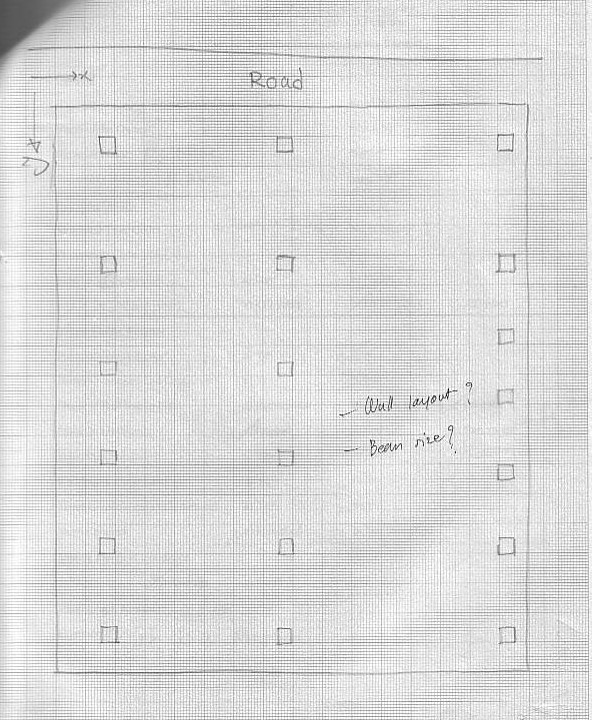 x
Road
y
- Wall layout ?
- Beam size ?